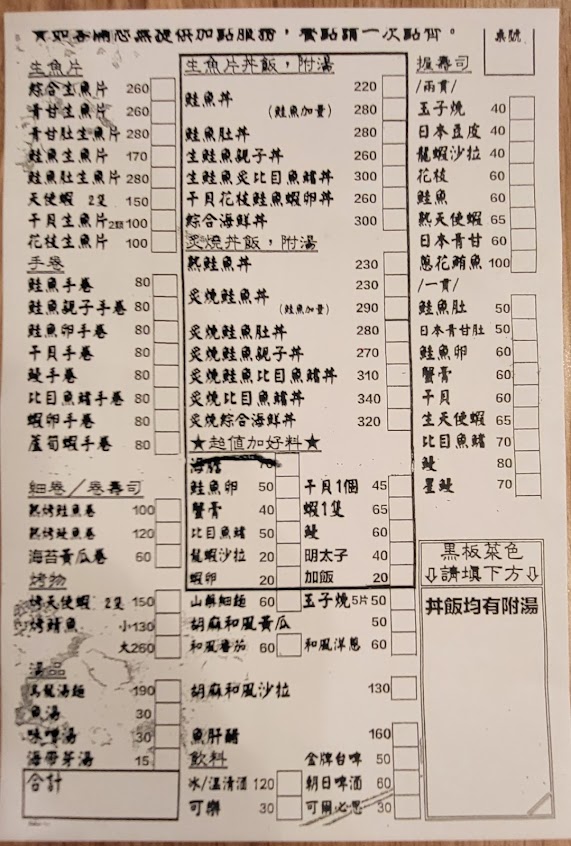 客滿恕無提供加點服務，餐點請一次點齊。
桌號
生魚片
綜合生魚片 260
青甘生魚片 260
青甘肚生魚片 280
鮭魚生魚片 170
鮭魚肚生魚片 280
天使蝦 2隻 150
干貝生魚片2顆 100
花枝生魚片 100
手卷
鮭魚手卷 80
鮭魚親子手卷 80
鮭魚卵手卷 80
干貝手卷 80
鰻手卷 80
比目魚鰭手卷 80
蝦卵手卷 80
蘆筍蝦手卷 80
細卷／卷壽司
熟烤鮭魚卷 100
熟烤鰻魚卷 120
海苔黃瓜卷 60
烤物
烤天使蝦 2隻 150
烤鯖魚 小130
大260
湯品
烏龍湯麵 190
魚湯 30
味噌湯 30
海帶芽湯 15
合計
生魚片丼飯，附湯
鮭魚丼 220
(鮭魚加量) 280
鮭魚肚丼 280
生鮭魚親子丼 260
生鮭魚炙比目魚鰭丼 300
干貝花枝鮭魚蝦卵丼 260
綜合海鮮丼 300
炙燒丼飯，附湯
熟鮭魚丼 230
炙燒鮭魚丼 230
(鮭魚加量) 290
炙燒鮭魚肚丼 280
炙燒鮭魚親子丼 270
炙燒鮭魚比目魚鰭丼 310
炙燒比目魚鰭丼 340
炙燒綜合海鮮丼 320
★超值加好料★
海膽 70
鮭魚卵 50 干貝1個 45
蟹膏 40 蝦1隻 65
比目魚鰭 50 鰻 60
龍蝦沙拉 20 明太子 40
蝦卵 20 加飯 20
山藥細麵 60 玉子燒5片 50
胡麻和風黃瓜 50
和風番茄 60 和風洋蔥 60
胡麻和風沙拉 130
魚肝醋 160
飲料 金牌台啤 50
冰/溫清酒 120 朝日啤酒 60
可樂 30 可爾必思 30
握壽司
/兩貫/
玉子燒 40
日本豆皮 40
龍蝦沙拉 40
花枝 60
鮭魚 60
熟天使蝦 65
日本青甘 60
蔥花鮪魚 100
/一貫/
鮭魚肚 50
日本青甘肚 50
鮭魚卵 60
蟹膏 60
干貝 60
生天使蝦 65
比目魚鰭 70
鰻 80
星鰻 70
黑板菜色
⇩請填下方⇩
丼飯均有附湯